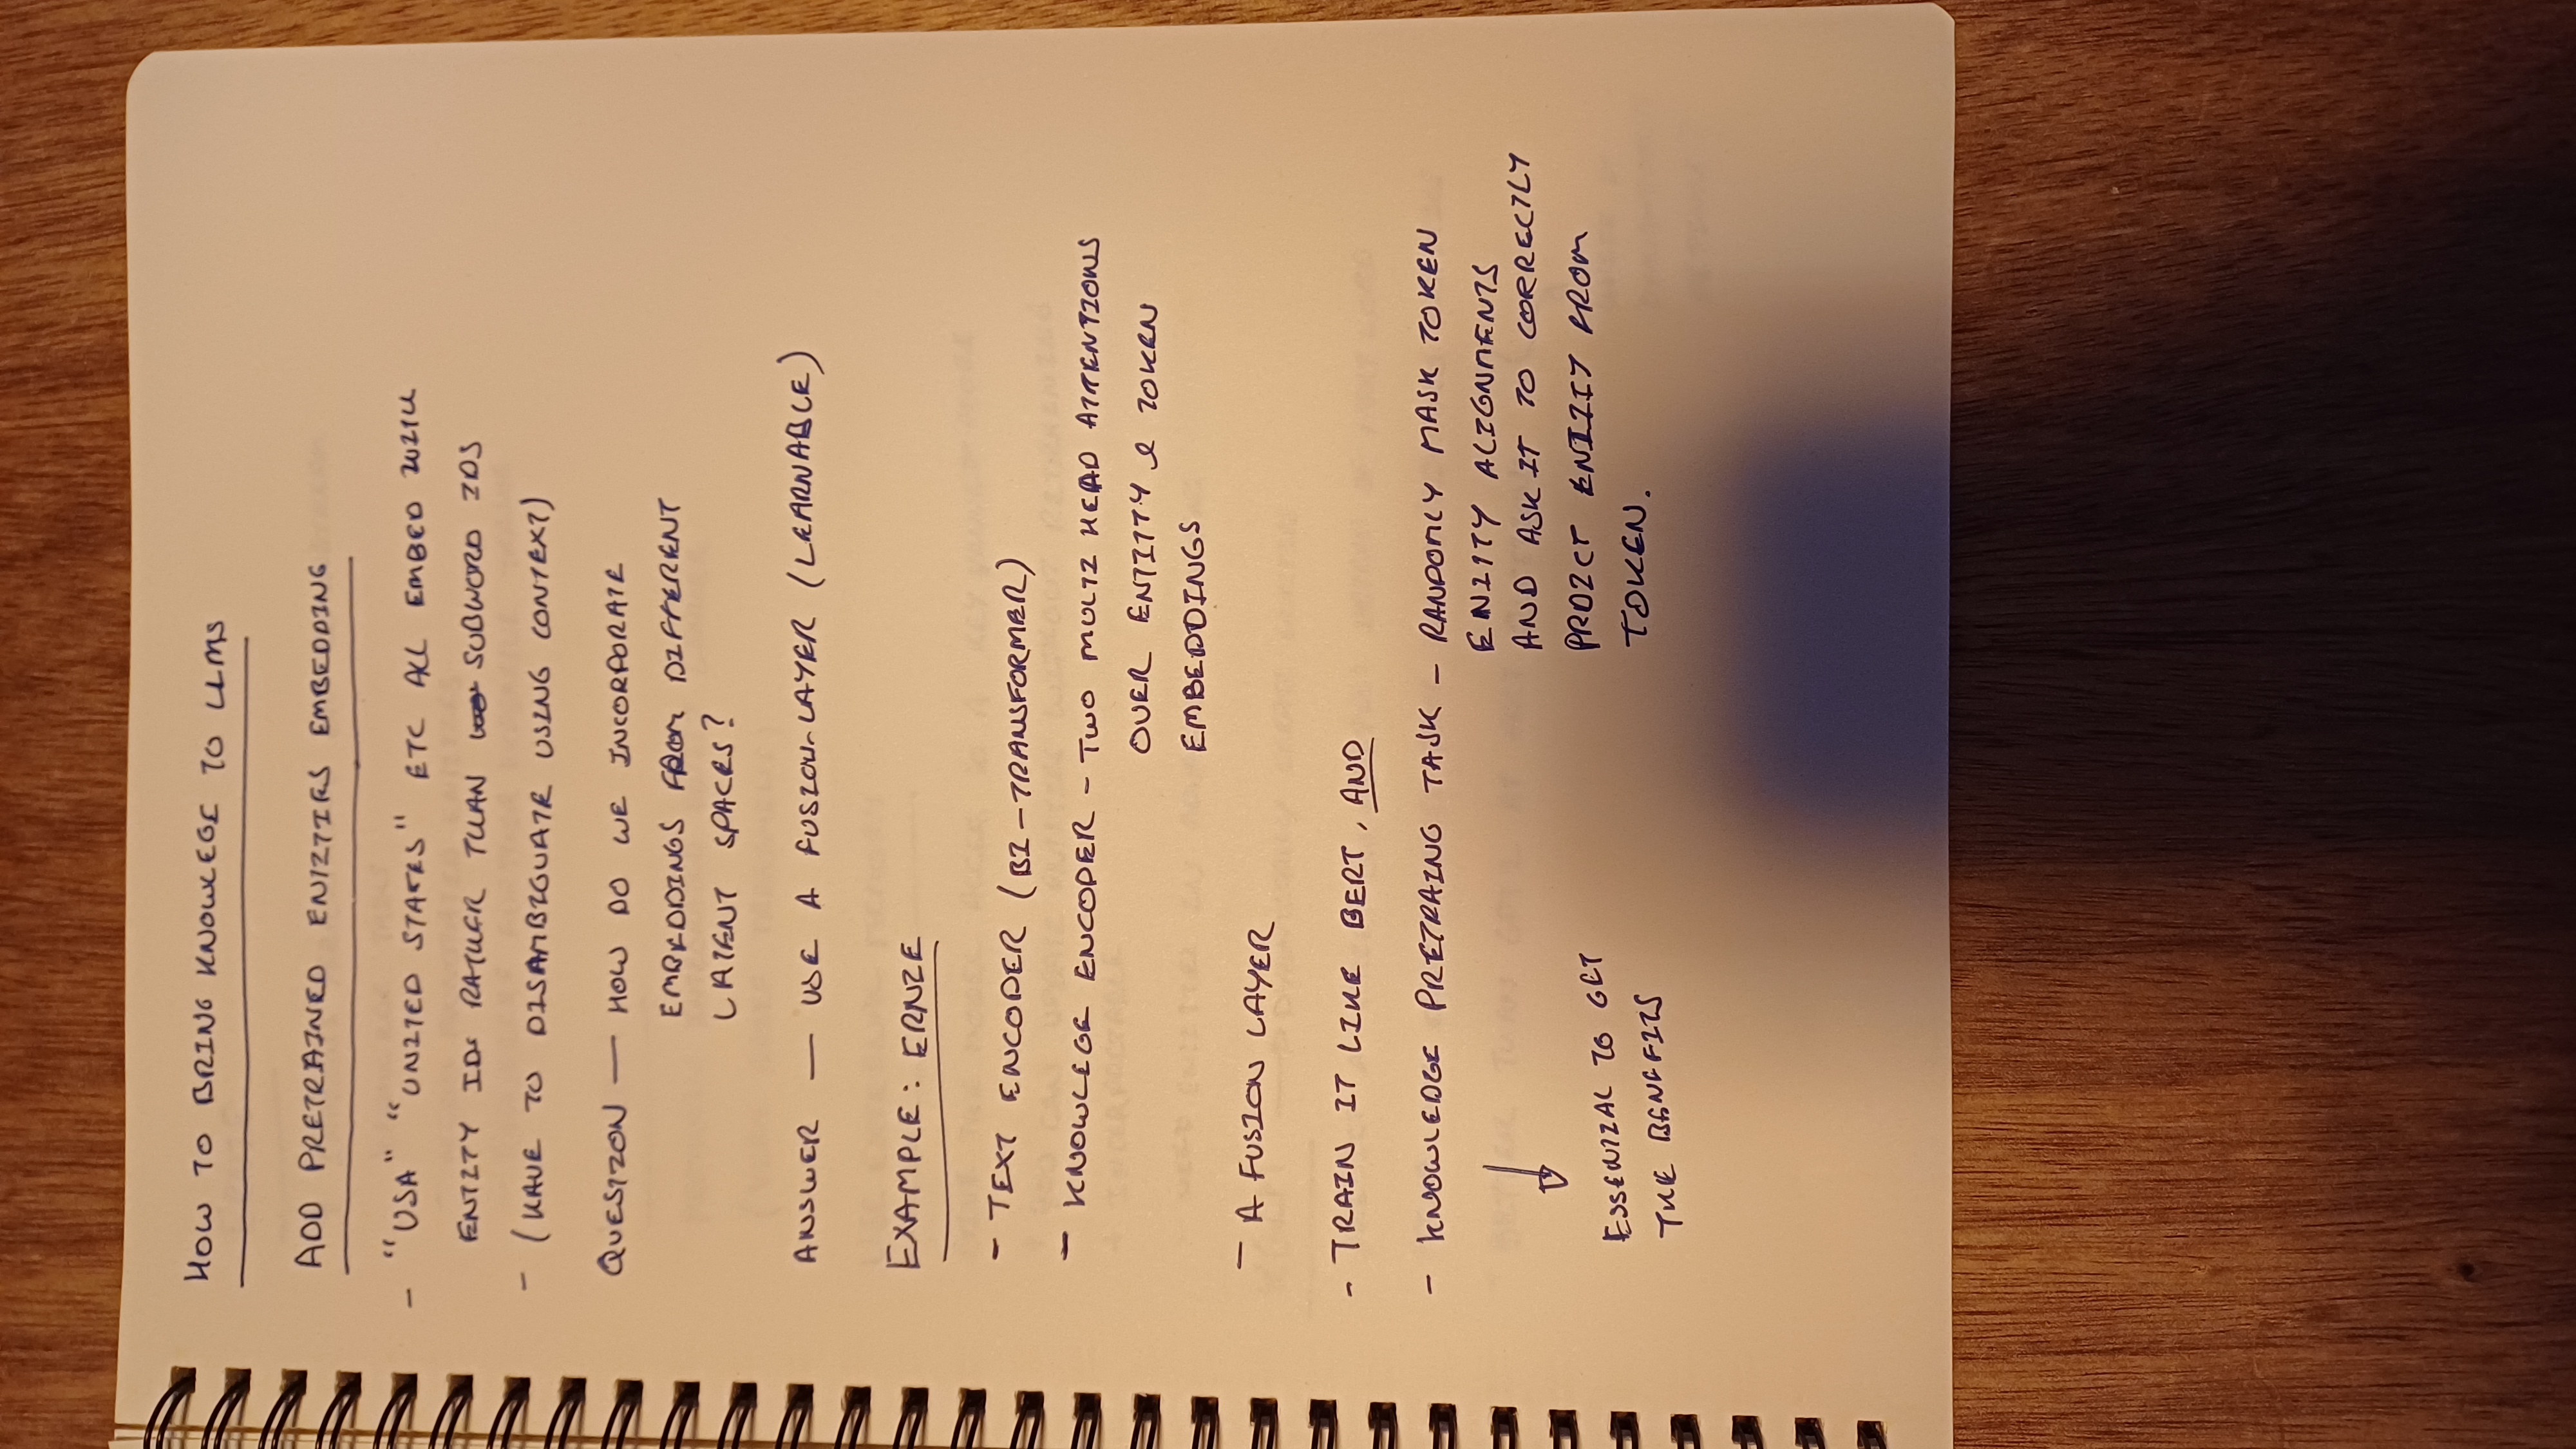 HOW TO BRING KNOWLEGE TO LLMS
ADD PRETRAINED ENITIES EMBEDDING
- "USA" "UNITED STATES" ETC ALL EMBED WITH
ENTITY IDS RATHER THAN SUBWORD IDS
- (HAVE TO DISAMBIGUATE USING CONTEXT)
QUESTION — HOW DO WE INCORPORATE
EMBEDDINGS FROM DIFFERENT
LATENT SPACES?
ANSWER — USE A FUSION-LAYER (LEARNABLE)
EXAMPLE: ERNIE
- TEXT ENCODER (BI-TRANSFORMER)
- KNOWLEGE ENCODER - TWO MULTI HEAD ATTENTIONS
OVER ENTITY & TOKEN
EMBEDDINGS
- A FUSION LAYER
- TRAIN IT LIKE BERT, AND
- KNOWLEDGE PRETRAING TASK - RANDOMLY MASK TOKEN
ENITTY ALIGNMENTS
AND ASK IT TO CORRECTLY
PRDICT ENTITY FROM
TOKEN.
ESSENTIAL TO GET
THE BENEFITS